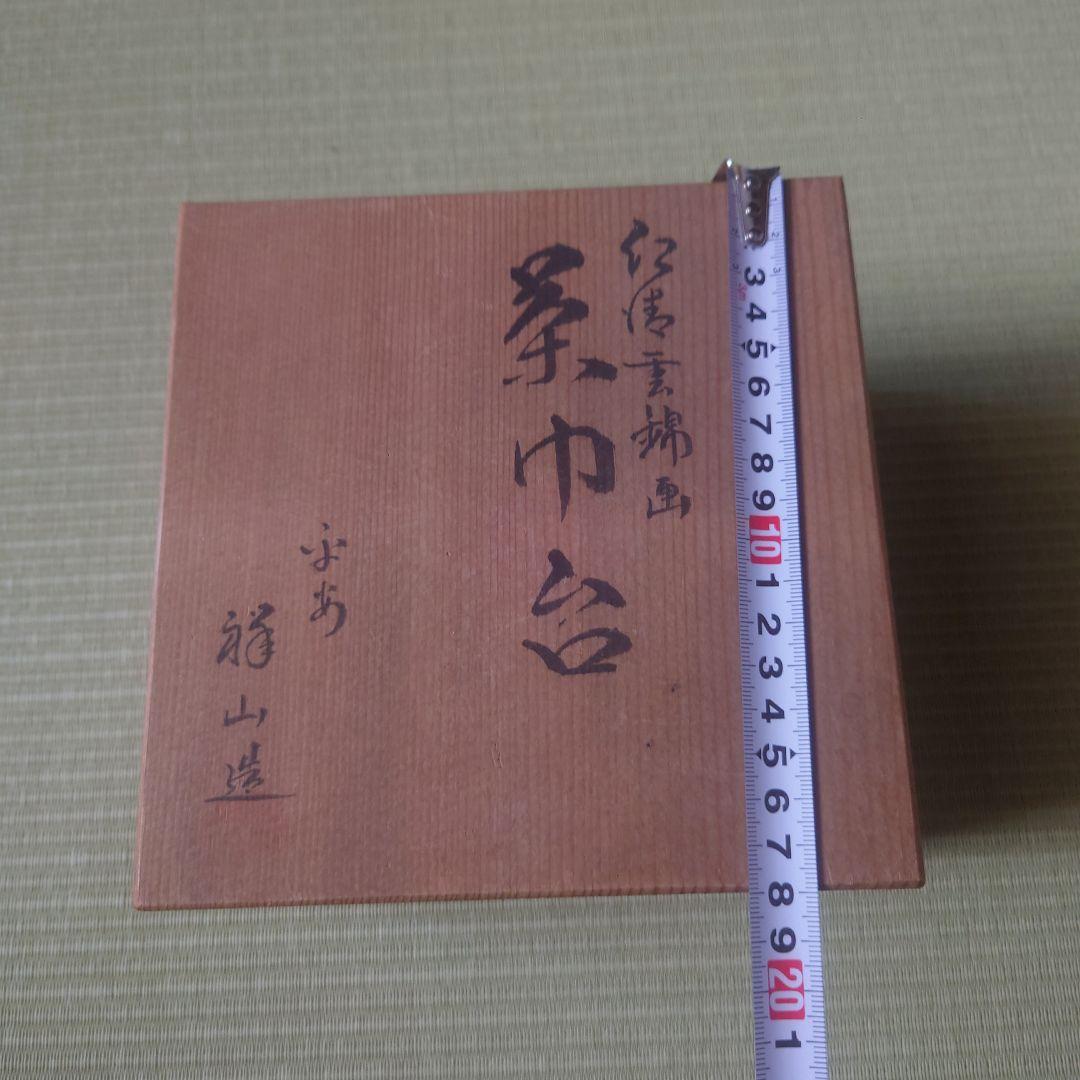 仁清雲錦画
茶巾台
平安
祥山造
1
2
3
4
5
6
7
8
9
10
1
2
3
4
5
6
7
8
9
20
1